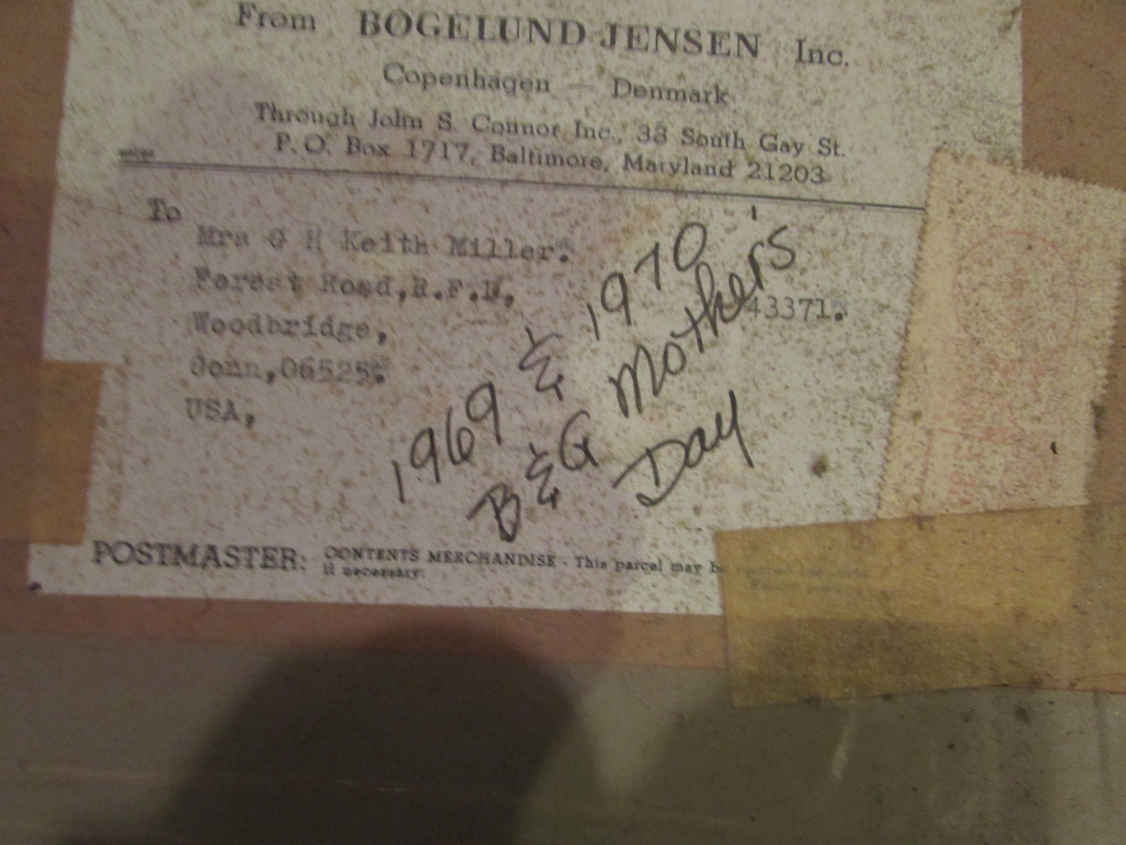 From BOGELUND-JENSEN Inc.
Copenhagen - Denmark
Through John S. Connor Inc., 33 South Gay St.
P.O. Box 1717, Baltimore, Maryland 21203
To
Mrs G H Keith Miller.
Forest Road, R.F.D,
43371.
Woodbridge,
Conn, 06525.
USA,
1969 & 1970
B&G Mother's
Day
POSTMASTER: CONTENTS MERCHANDISE - This parcel may be
if necessary.